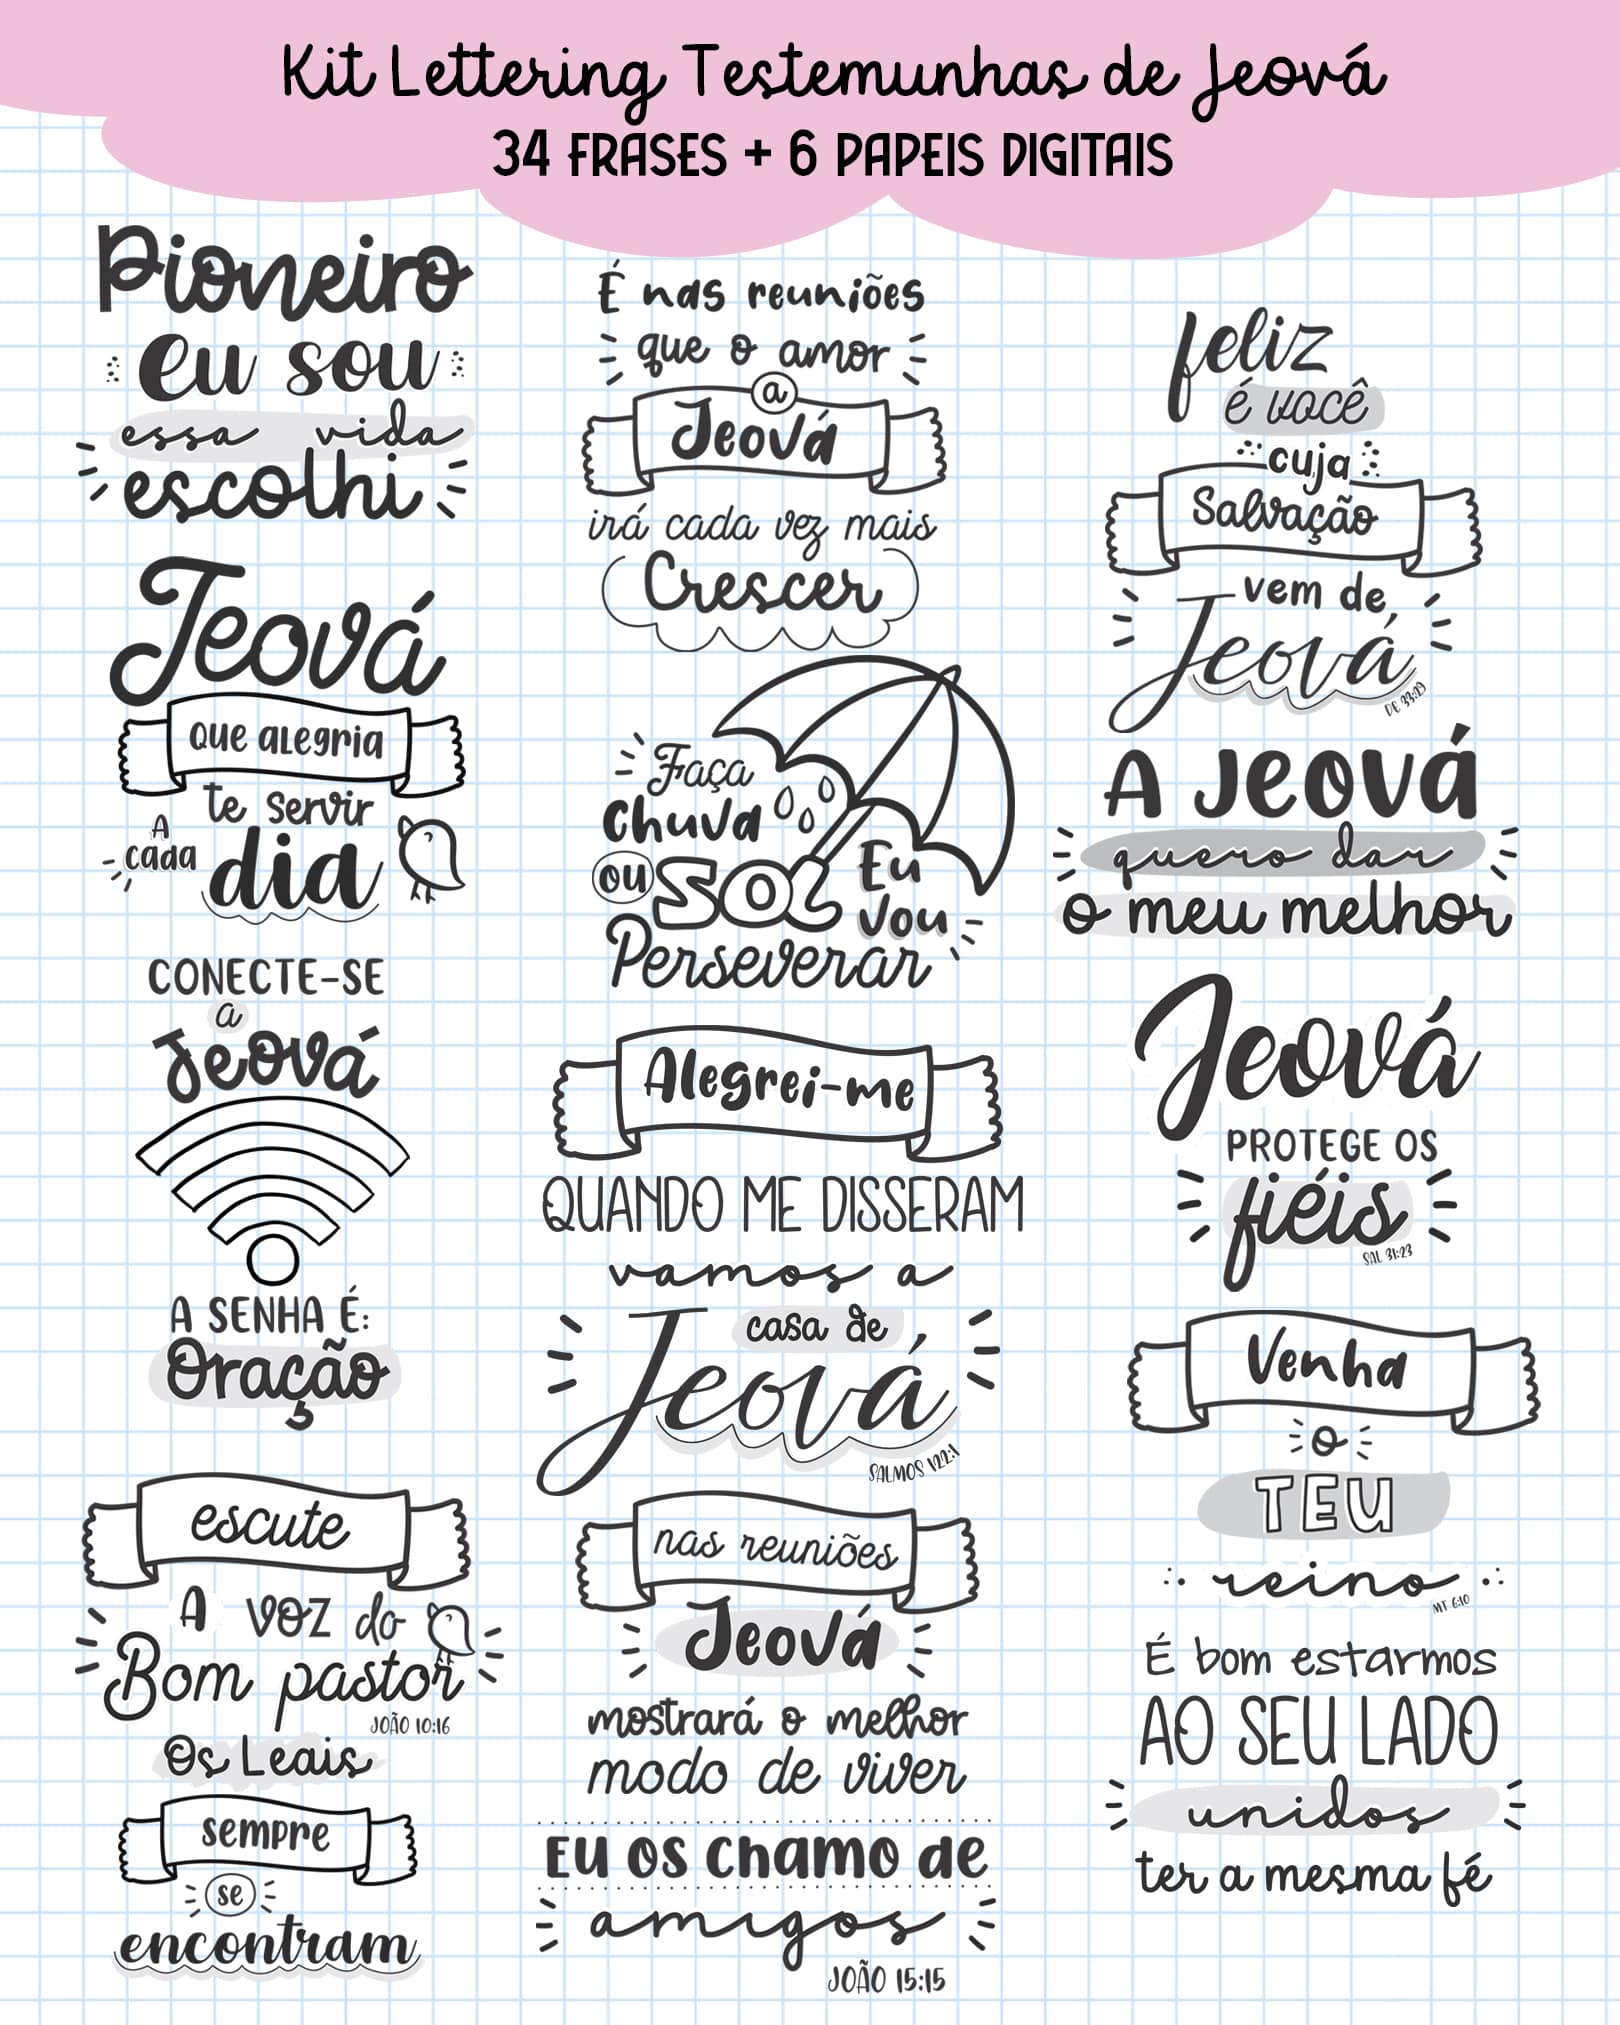 Kit Lettering Testemunhas de Jeová
34 FRASES + 6 PAPEIS DIGITAIS
Pioneiro
eu sou
essa vida
escolhi
Jeová
Que alegria
te servir
A
cada
dia
CONECTE-SE
a
Jeová
A SENHA É:
Oração
escute
A voz do
Bom pastor
JOÃO 10:16
Os Leais
sempre
se
encontram
É nas reuniões
que o amor
a
Jeová
irá cada vez mais
Crescer
Faça
chuva
ou
SOL
Eu
vou
Perseverar
Alegrei-me
QUANDO ME DISSERAM
vamos a
casa de
Jeová
SALMOS 122:1
nas reuniões
Jeová
mostrará o melhor
modo de viver
Eu os chamo de
amigos
JOÃO 15:15
feliz
é você
cuja
Salvação
vem de
Jeová
DE 33:29
A Jeová
quero dar
o meu melhor
Jeová
PROTEGE OS
fiéis
SAL 31:23
Venha
o
TEU
reino
MT 6:10
É bom estarmos
AO SEU LADO
unidos
ter a mesma fé